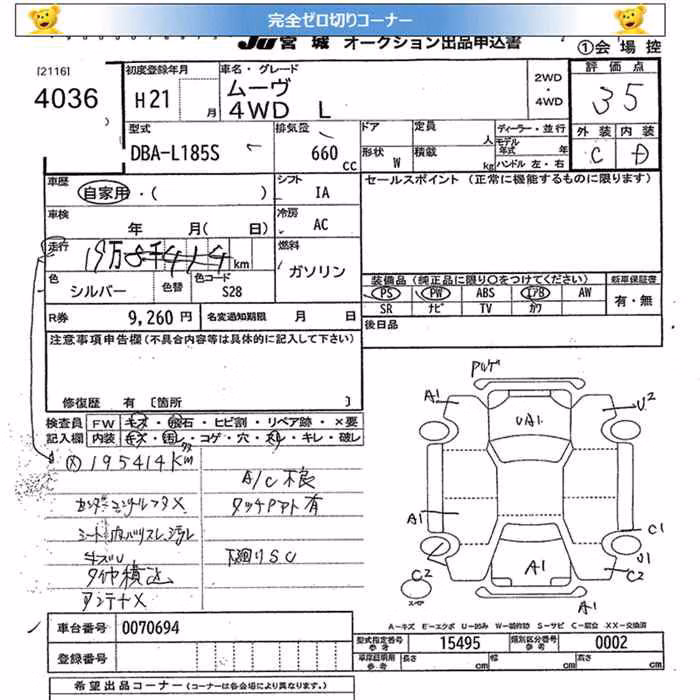 完全ゼロ切りコーナー
JU宮城 オークション出品申込書
①会場控
[2116]
4036
初度登録年月
H21 月
車名・グレード
ムーヴ
4WD L
2WD
・
4WD
評価点
35
外装 内装
C D
型式
DBA-L185S
排気量
660 cc
ドア
形状 W
定員 人
積載 kg
ディーラー・並行
モデル年式 年
ハンドル 左・右
車歴
自家用・( )
シフト
IA
セールスポイント (正常に機能するものに限ります)
車検
年 月( 日)
冷房
AC
走行
19万 km
燃料
ガソリン
色
シルバー
色替
色コード
S28
装備品(純正品に限り○をつけてください)
新車保証書
PS PW ABS エアB AW
有・無
SR ナビ TV カワ
R券 9,260 円
名変通知期限 月 日
後日品
注意事項申告欄(不具合内容等は具体的に記入して下さい)
修復歴 有 [箇所 ]
検査員
記入欄
FW キズ・飛石・ヒビ割・リペア跡・×要
内装 キズ・汚レ・コゲ・穴・スレ・キレ・破レ
195414Km
A/C不良
タッチアップ有
下廻りSC
アンテナX
アルゲ
A1
U2
UA1
A1
C1
U1
C2
C2
A1
A1
スペア
A=キズ E=エクボ U=凹み W=補修跡 S=サビ C=腐食 XX=交換済
車台番号 0070694
型式指定番号
参考
15495
類別区分番号
参考
0002
登録番号
車庫証明用
参考
長さ cm
幅 cm
高さ cm
希望出品コーナー(コーナーは各会場により異なります。)